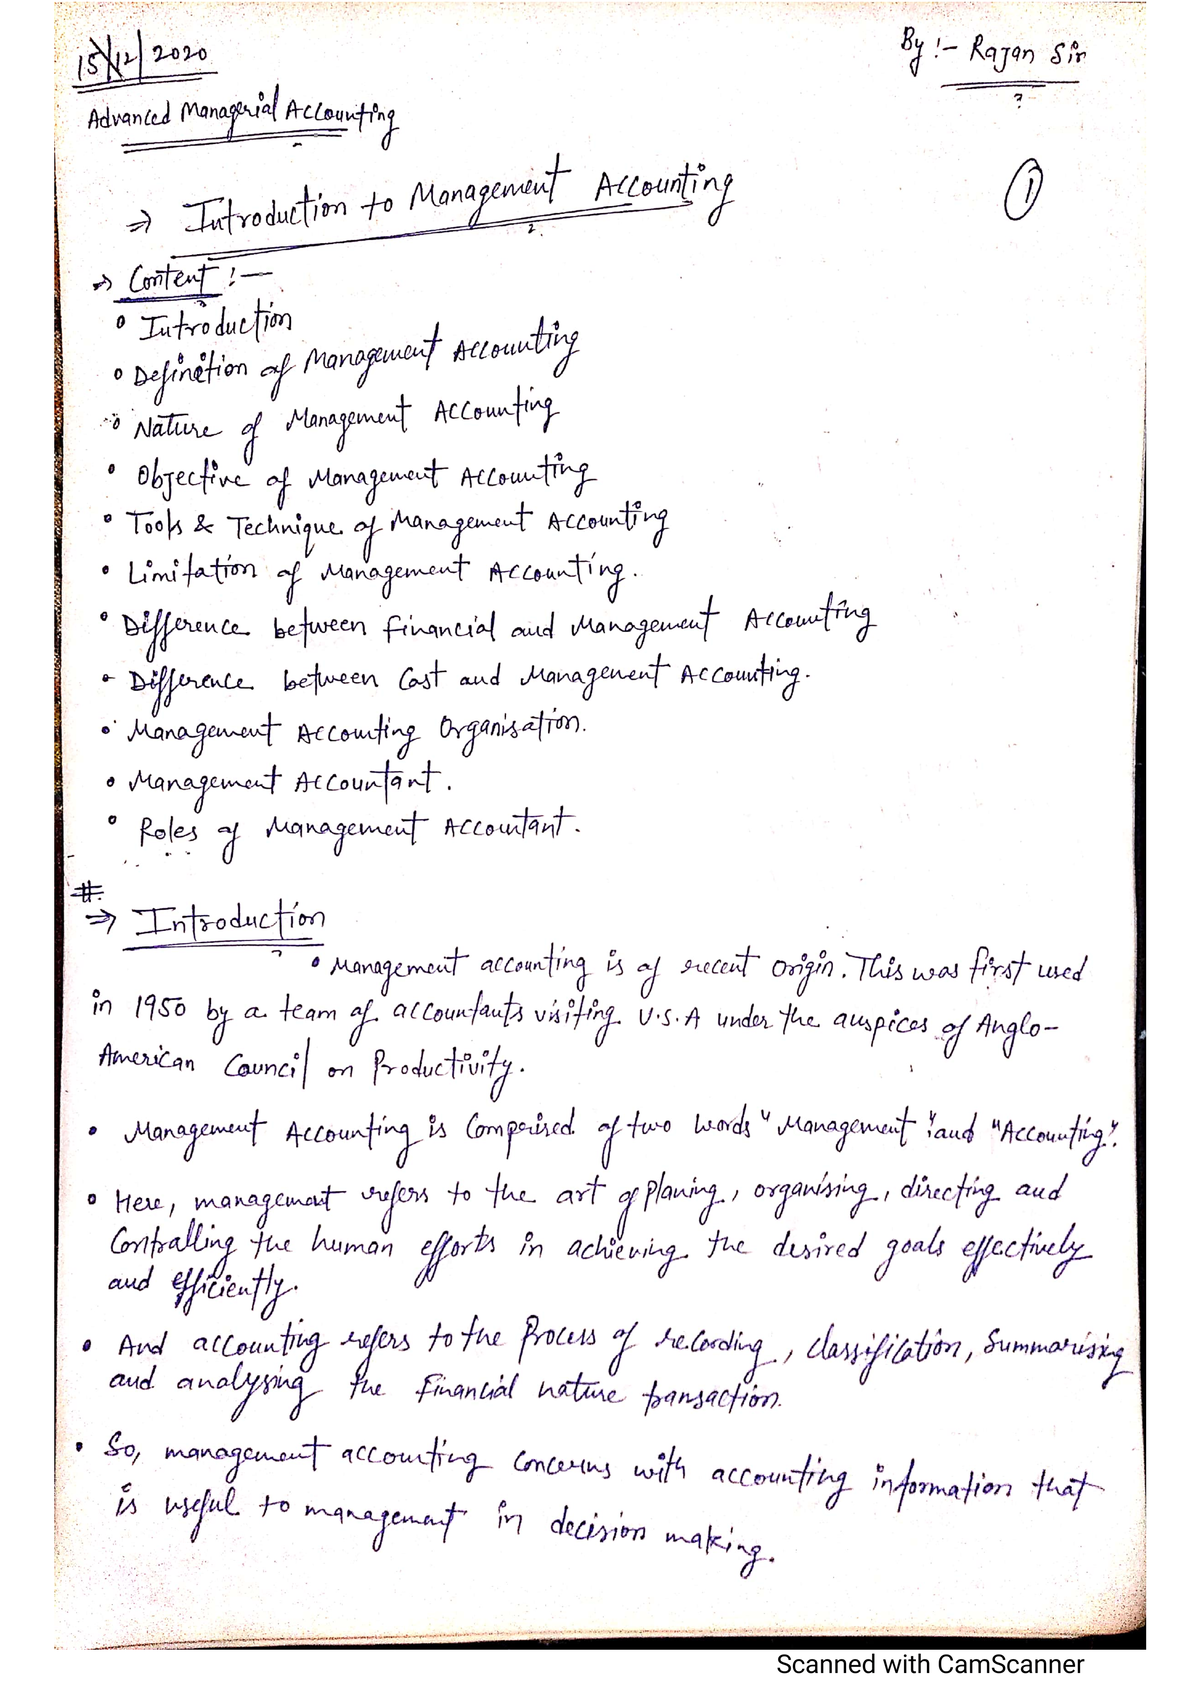 15/12/2020
By :- Rajan Sir
Advanced Managerial Accounting
⇒ Introduction to Management Accounting
1
⇒ Content :-
Introduction
Definition of Management Accounting
Nature of Management Accounting
Objective of Management Accounting
Tools & Technique of Management Accounting
Limitation of Management Accounting.
Difference between Financial and Management Accounting
Difference between Cost and Management Accounting.
Management Accounting Organisation.
Management Accountant.
Roles of Management Accountant.
#
⇒ Introduction
• Management accounting is of recent origin. This was first used
in 1950 by a team of accountants visiting U.S.A under the auspices of Anglo-
American Council on Productivity.
• Management Accounting is Comprised of two words "Management" and "Accounting".
• Here, management refers to the art of planing, organising, directing and
Controlling the human efforts in achieving the desired goals effectively
and efficiently.
• And accounting refers to the Process of recording, classification, Summarising
and analysing the financial nature transaction.
• So, management accounting concerns with accounting information that
is useful to management in decision making.
Scanned with CamScanner